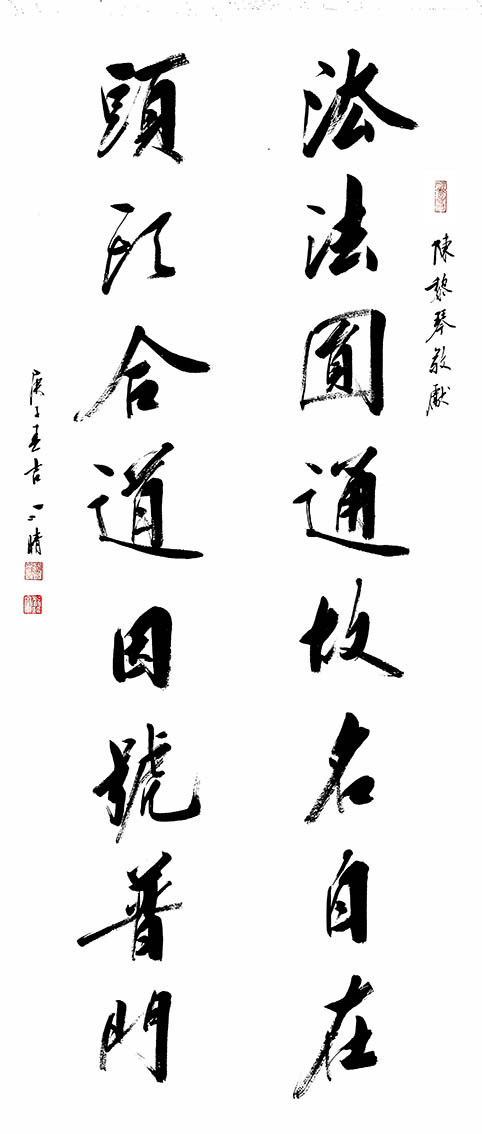 陳黎琴敬獻
法法圓通故名自在
頭頭合道因號普門
庚子春吉 一晴